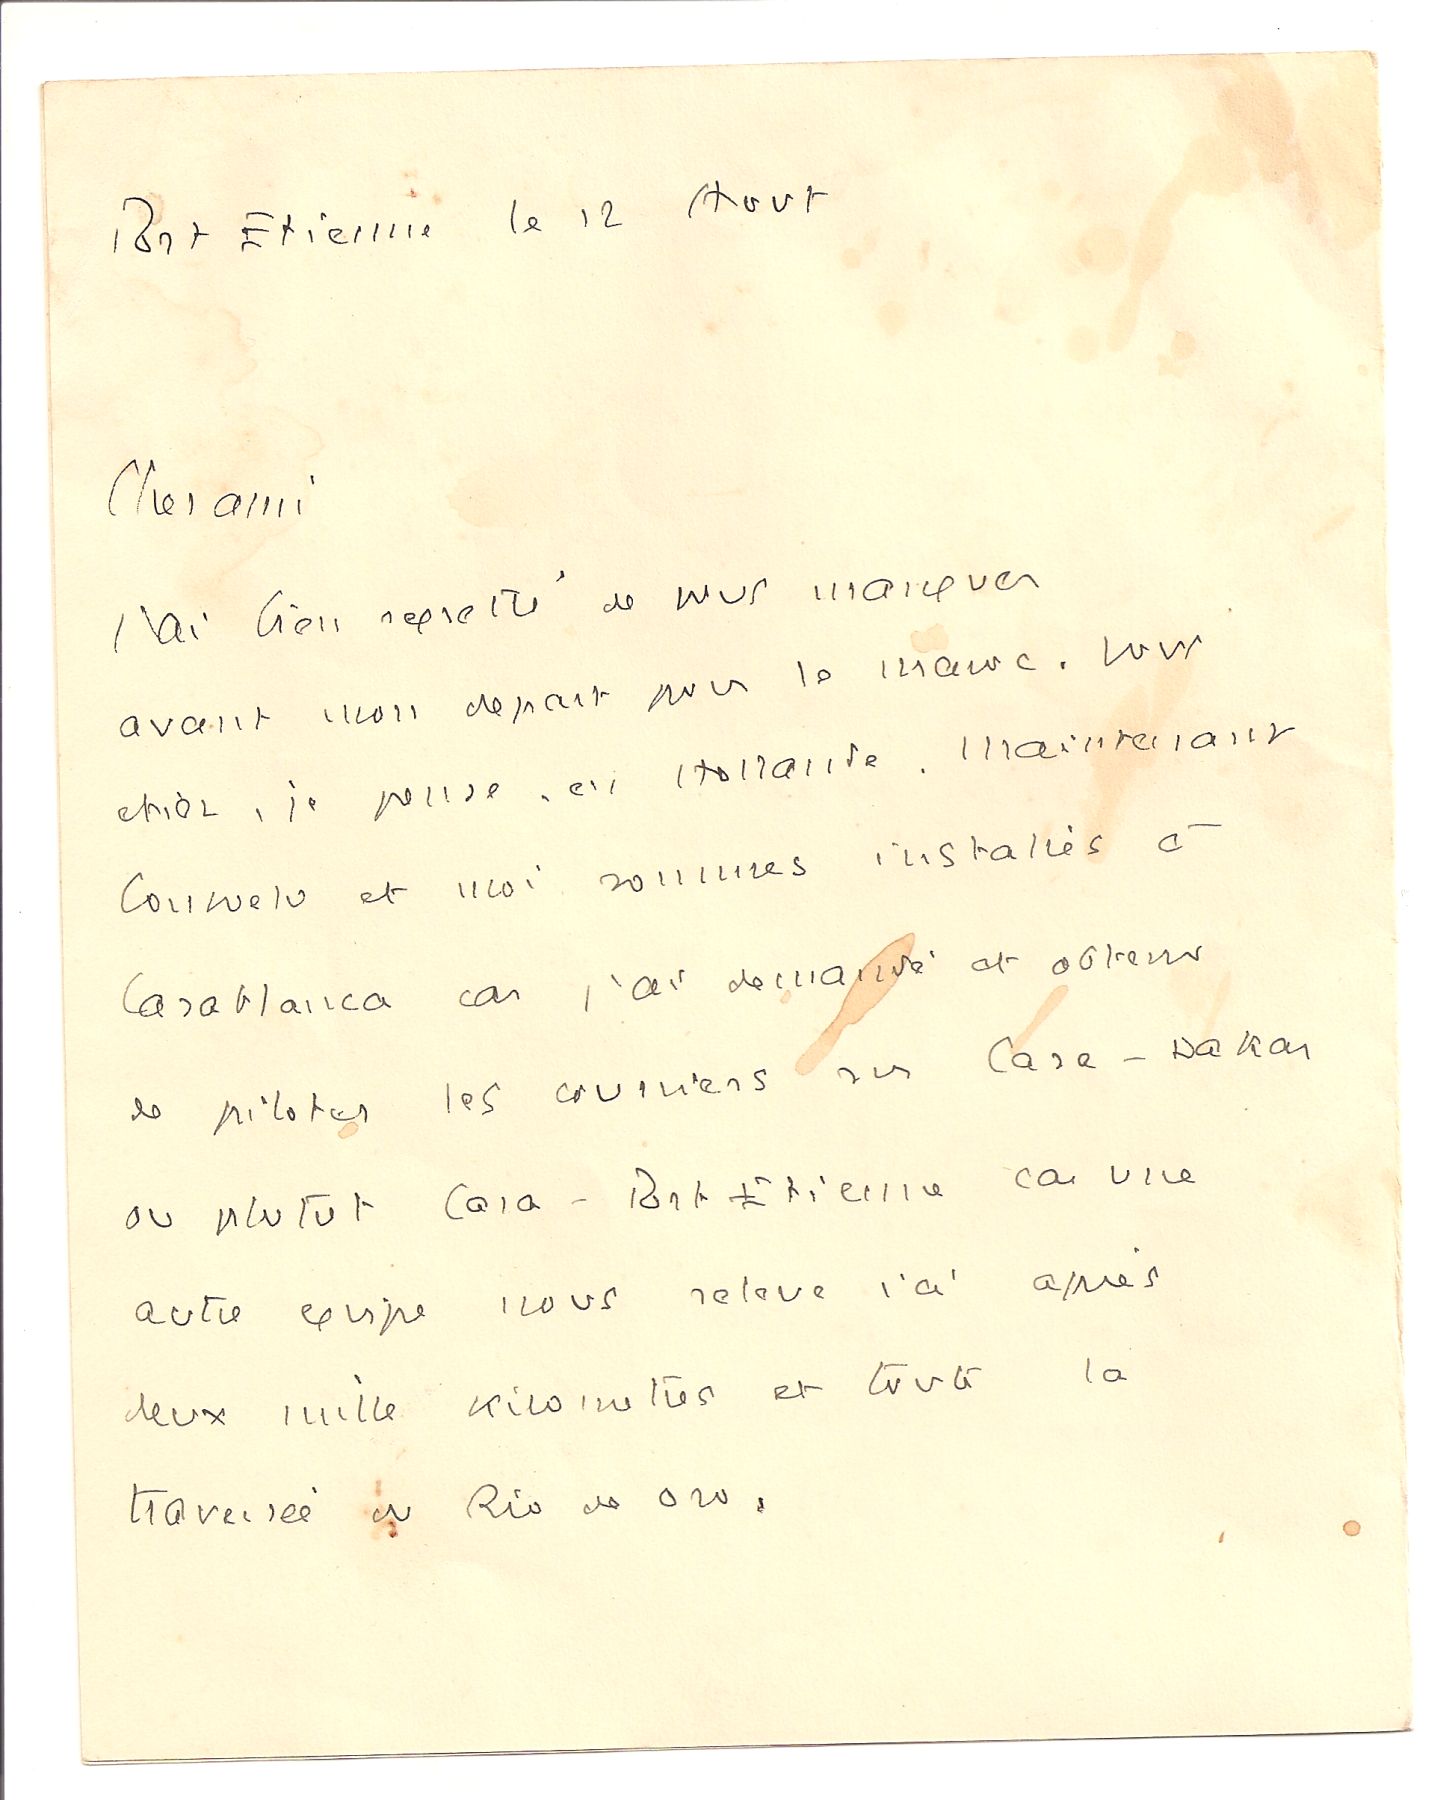 Port Etienne le 12 Aout
Cher ami
J'ai bien regretté de vous manquer
avant mon depart pour le maroc. Vous
etiez, je pense, en Hollande. Maintenant
Consuelo et moi sommes installés à
Casablanca car j'ai demandé et obtenu
de piloter les courriers sur Casa-Dakar
ou plutot Casa-Port Etienne car une
autre equipe nous releve ici après
deux mille kilometres et toute la
traversée du Rio de oro.